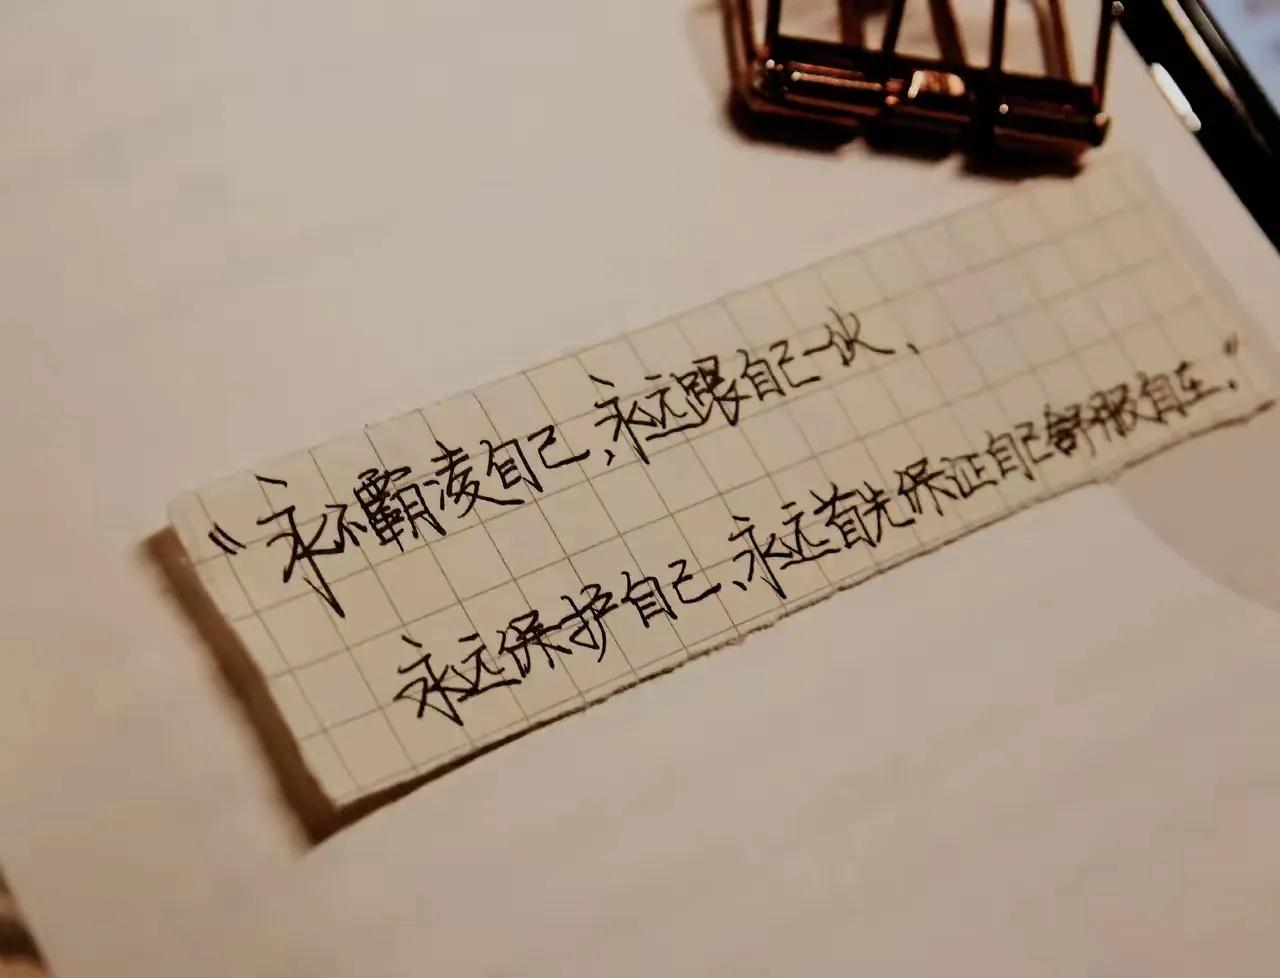 “永不霸凌自己,永远跟自己一伙、
永远保护自己、永远首先保证自己舒服自在.”